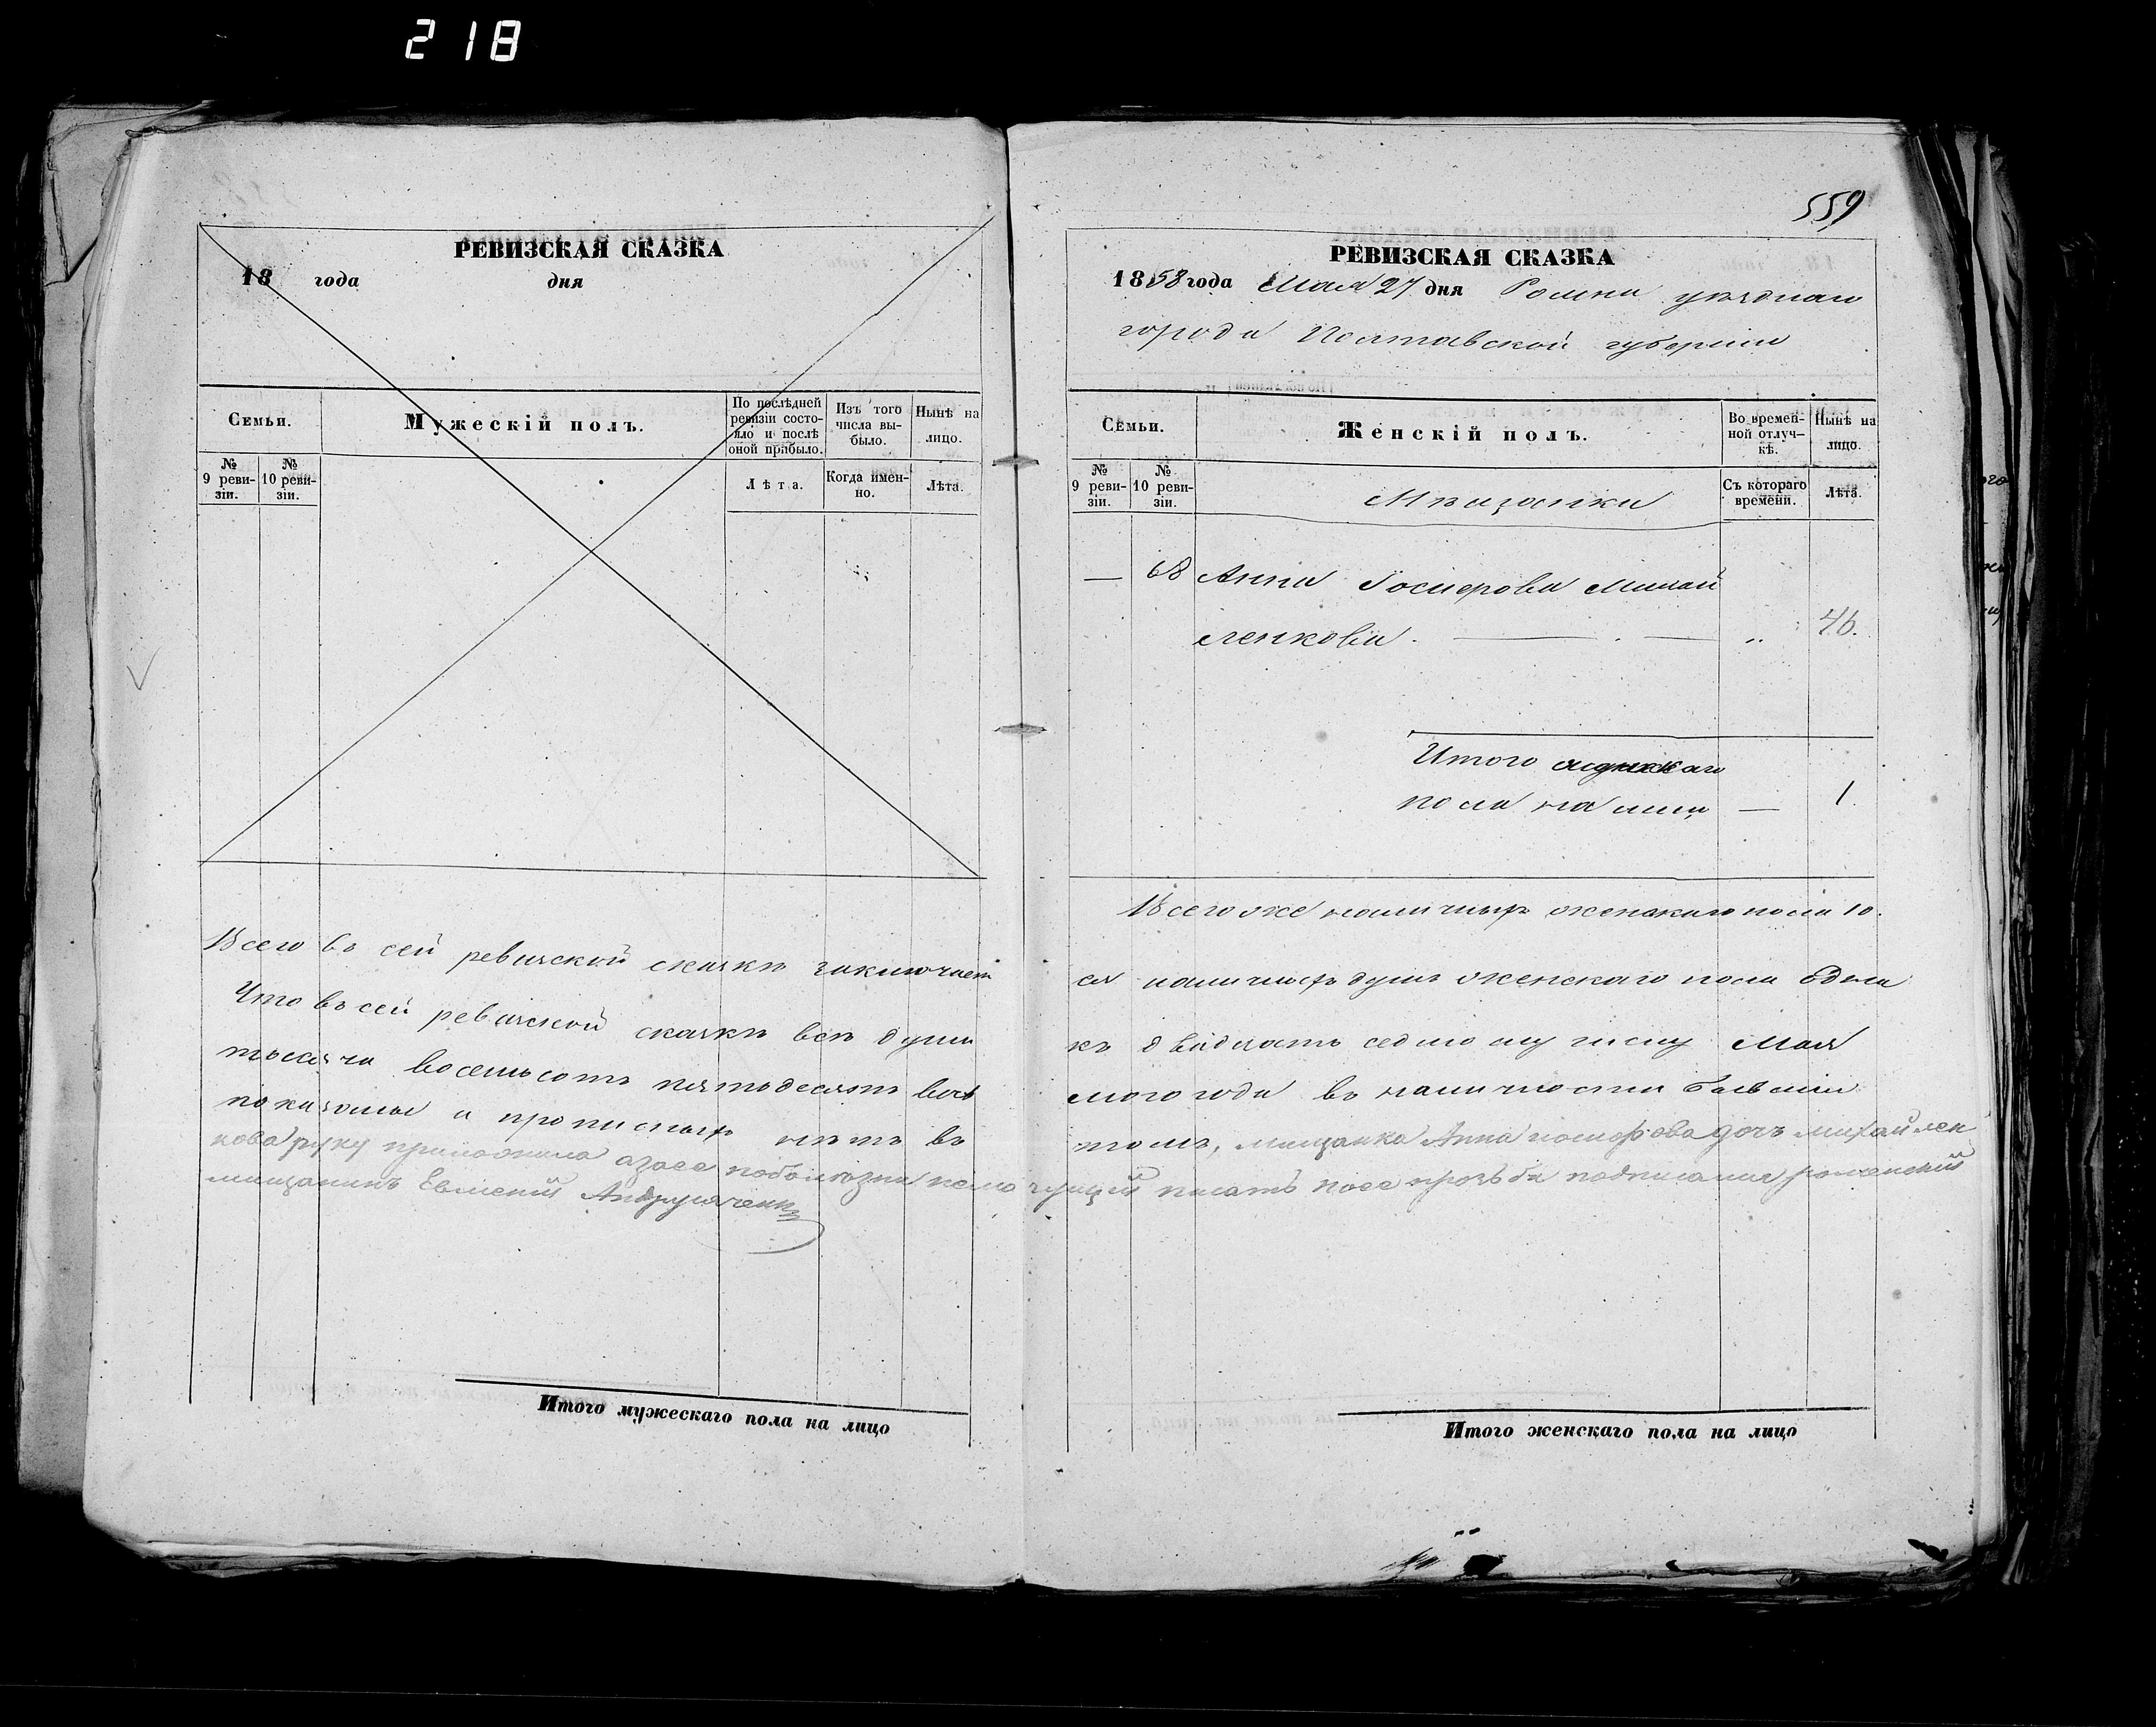 218
РЕВИЗСКАЯ СКАЗКА
18 года дня
Семьи.
Мужескій полъ.
По послѣдней ревизіи состояло и послѣ оной прибыло.
Изъ того числа выбыло.
Нынѣ на лицо.
№ 9 ревизіи.
№ 10 ревизіи.
Лѣта.
Когда именно.
Лѣта.
559
РЕВИЗСКАЯ СКАЗКА
1858 года Мая 27 дня Ромна уѣзднаго
города Полтавской губерніи
Семьи.
Женскій полъ.
Во временной отлучкѣ.
Нынѣ на лицо.
№ 9 ревизіи.
№ 10 ревизіи.
Мѣщанки
Съ котораго времени.
Лѣта.
— 68 Анна Михай
ленкова. — . — „ 46.
Итого женскаго
пола на лицо — 1.
Всего же наличныхъ женскаго пола 10.
Всего въ сей ревизской сказкѣ заключает
ся наличныхъ душъ женскаго пола одна
Что въ сей ревизской сказкѣ всѣ души
къ двадцать седьмому числу Мая
тысяча восемьсотъ пятьдесятъ вось
мого года въ наличности бывшіи
показаны и прописныхъ нѣтъ въ
томъ, мищанка Анна дочъ михайлен
кова руку приложила азаее поболѣзни немогущей писать поее прозьби подписался роменский
мищанинъ Евмений Андрущенко
Итого мужескаго пола на лицо
Итого женскаго пола на лицо